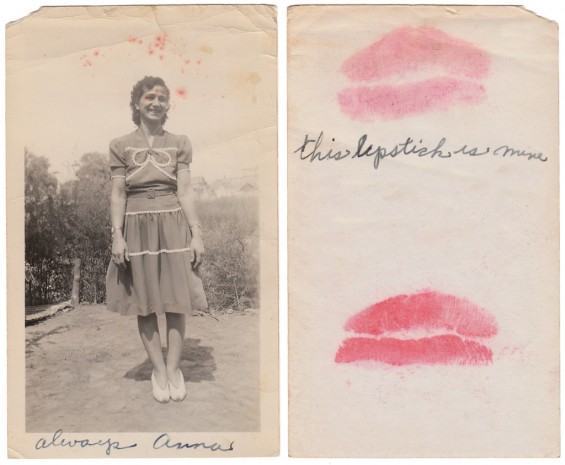 this lipstick is mine
always Anna